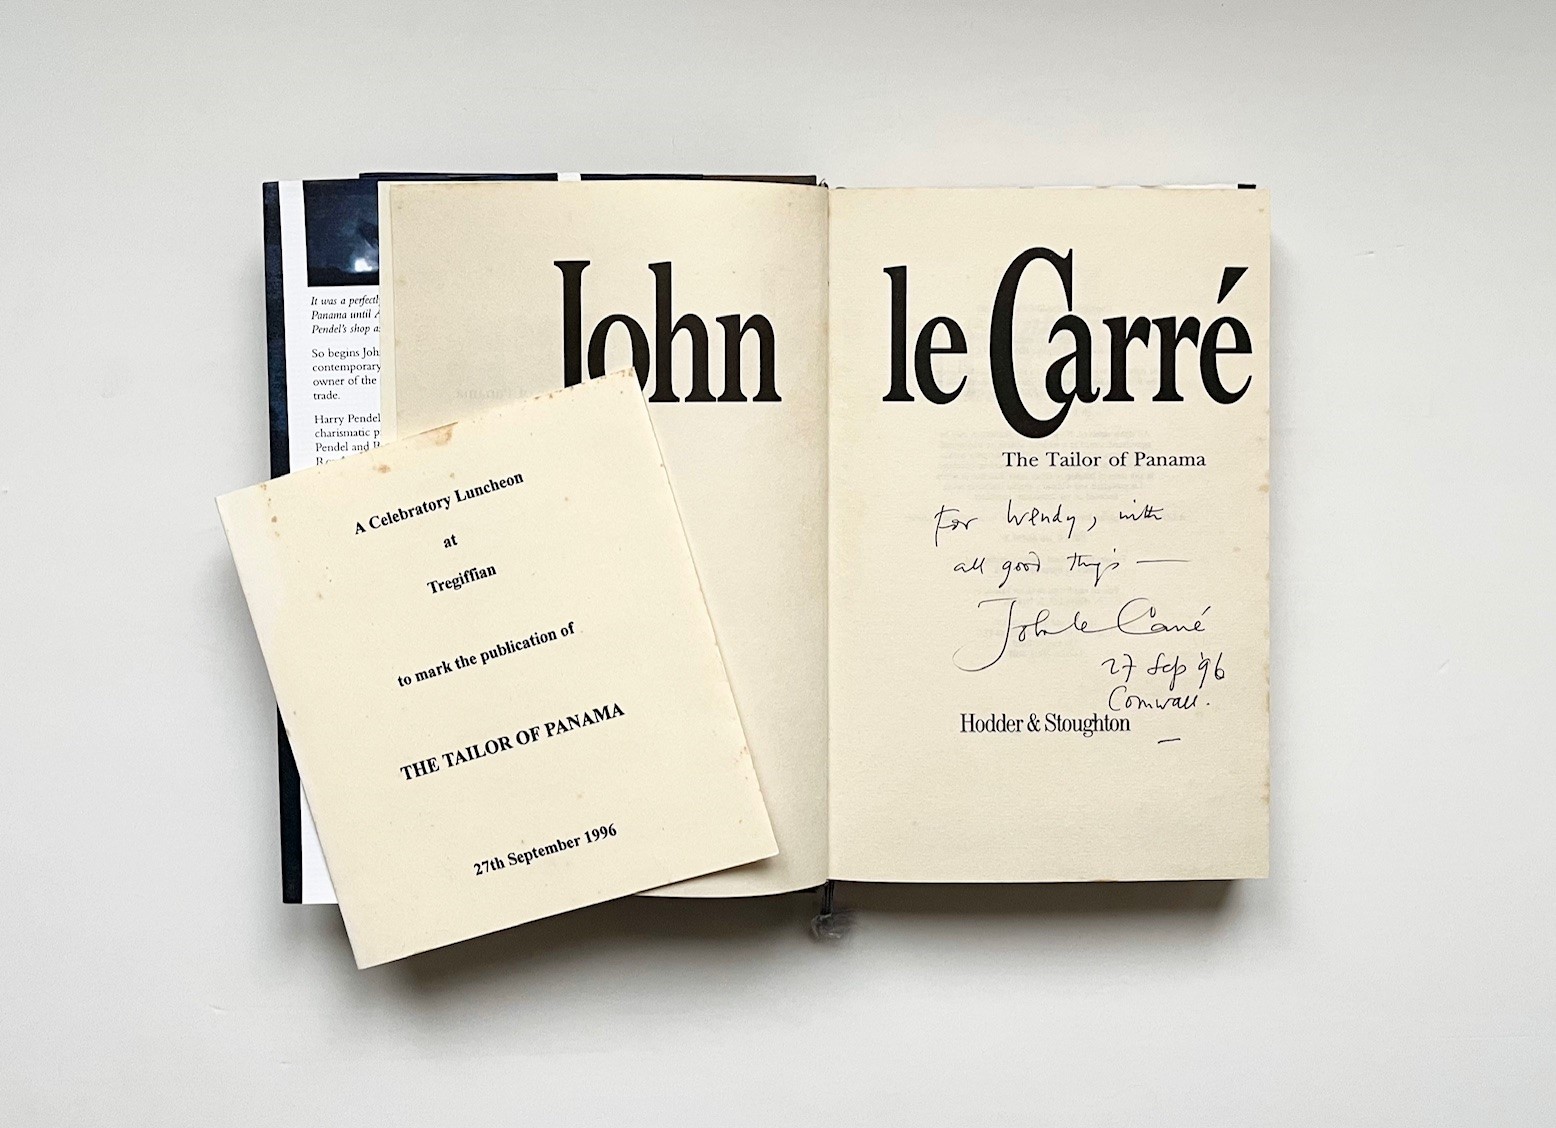 It was a perfectl
Panama until A
Pendel's shop a
So begins Joh
contemporary
owner of the
trade.
Harry Pendel
charismatic p
Pendel and
John
A Celebratory Luncheon
at
Tregiffian
to mark the publication of
THE TAILOR OF PANAMA
27th September 1996
le Carré
The Tailor of Panama
For Wendy, with
all good things —
John le Carré
27 Sep '96
Cornwall.
Hodder & Stoughton